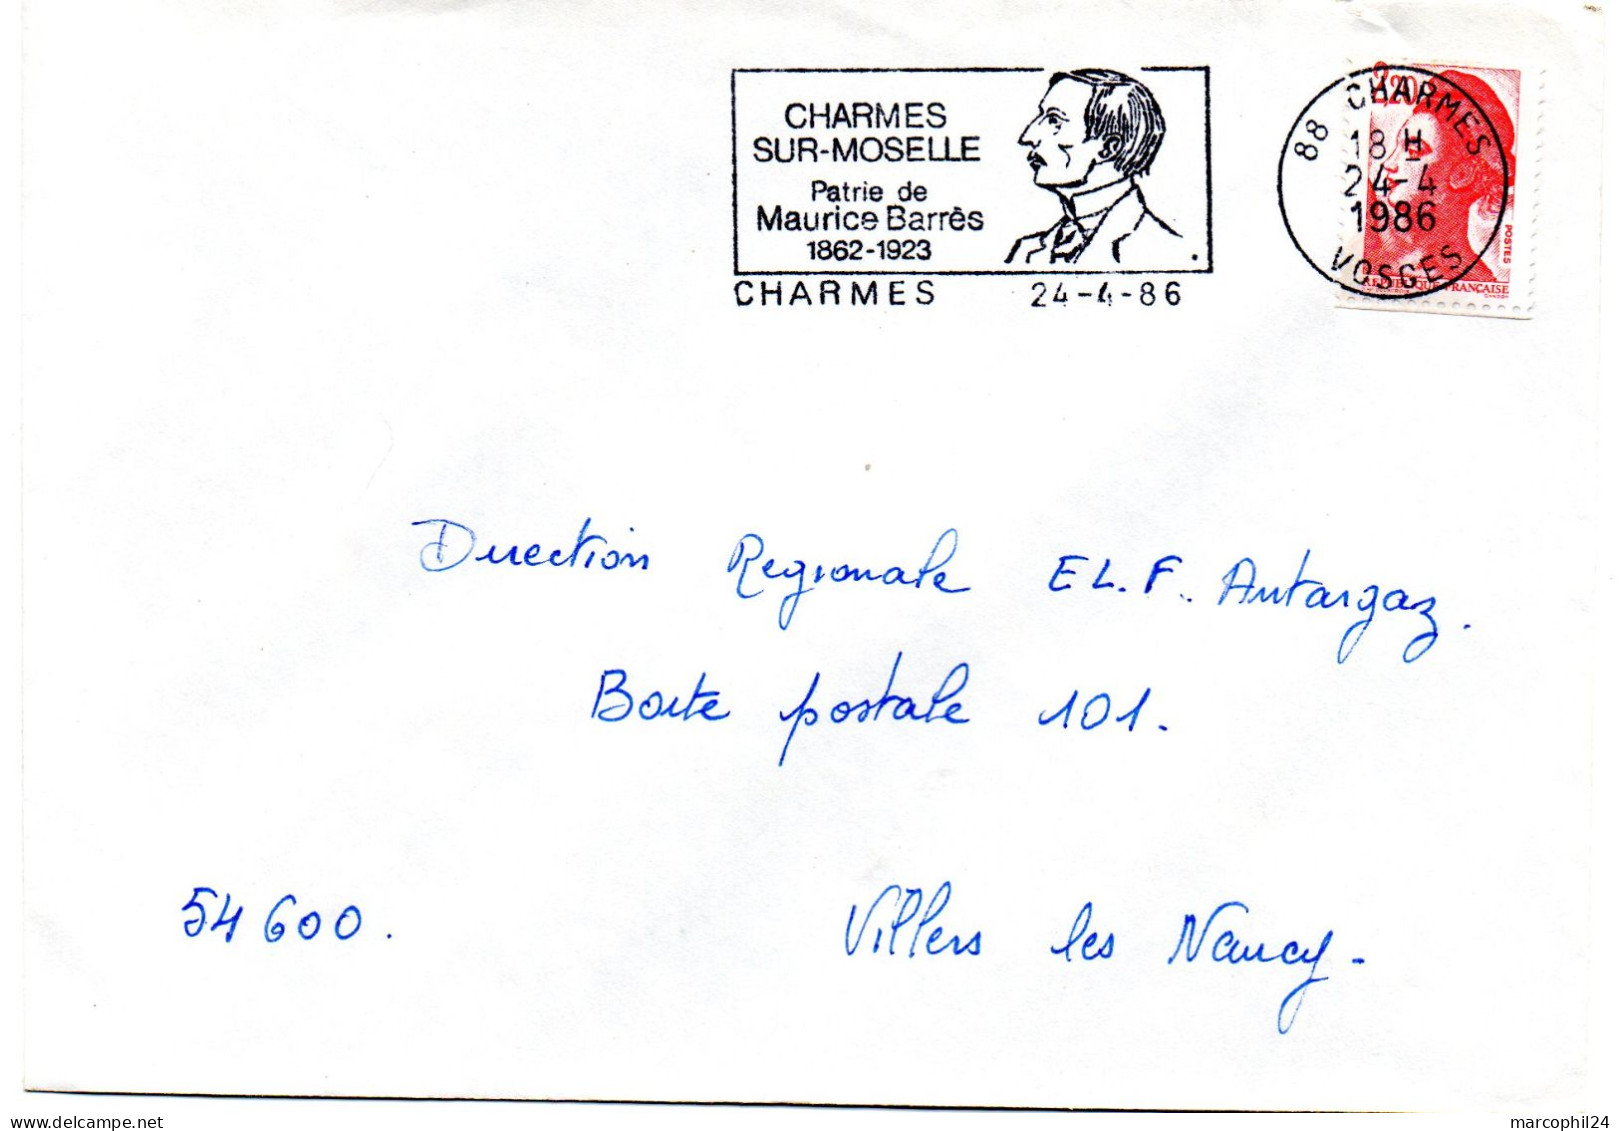 CHARMES
SUR-MOSELLE
Patrie de
Maurice Barrès
1862-1923
CHARMES 24-4-86
88 CHARMES
18 H
24-4
1986
VOSGES
2,20
POSTES
REPUBLIQUE FRANÇAISE
GANDON
Direction Regionale E L.F. Antargaz.
Boite postale 101.
54 600. Villers les Nancy-
delcampe.net
marcophil24